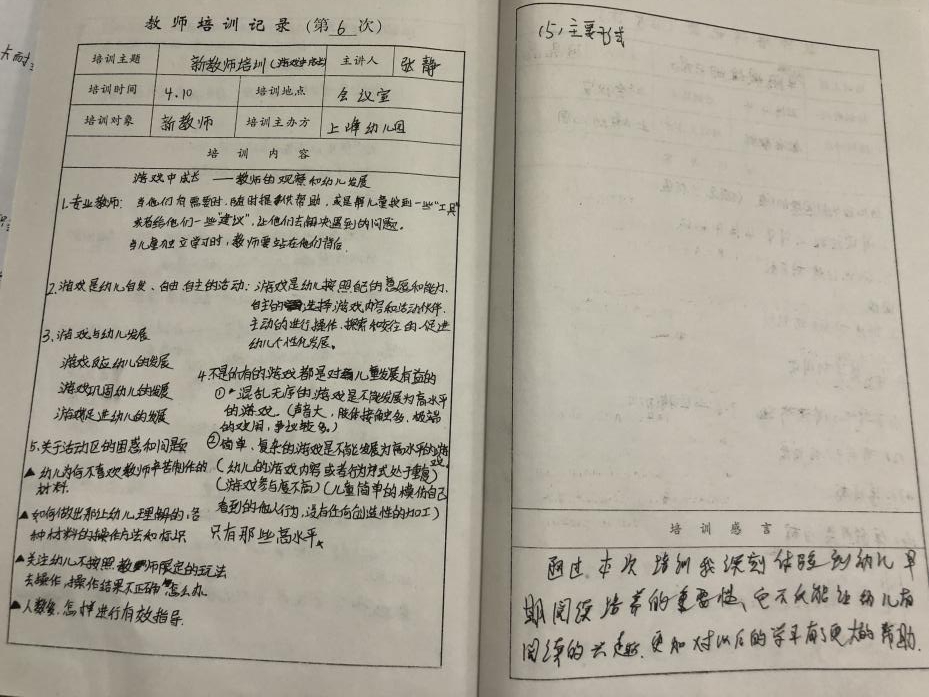 教师培训记录(第6次)
培训主题 新教师培训(游戏中成长) 主讲人 张静
培训时间 4.10 培训地点 会议室
培训对象 新教师 培训主办方 上峰幼儿园
培训内容
游戏中成长——教师的观察和幼儿发展
1.专业教师: 当他们有需要时,随时提供帮助,或是帮儿童找到一些"工具"
或者给他们一些"建议",让他们去解决遇到的问题。
当儿童独立学习时,教师要站在他们背后。
2.游戏是幼儿自发、自由、自主的活动:游戏是幼儿按照自己的意愿和能力,
自主的选择游戏内容和活动伙伴,
主动的进行操作、探索和交往的,促进
幼儿个性化发展。
3.游戏与幼儿发展
游戏反应幼儿的发展
游戏巩固幼儿的发展
游戏促进幼儿的发展
4.不是所有的游戏都是对儿童发展有益的
①混乱无序的游戏是不能发展为高水平
的游戏。(声音大,肢体接触多,极端
的戏闹,争议较多。)
②简单、复杂的游戏是不能发展为高水平的游戏。
(幼儿的游戏内容或者行为方式处于重复)
(游戏参与度不高)(儿童简单的模仿自己
看到的他人行为,没有任何创造性的加工)
只有那些高水平
5.关于活动区的困惑和问题
▲幼儿为何不喜欢教师辛苦制作的
材料.
▲如何做出那让幼儿理解的,各
种材料的操作方法和标识
▲关注幼儿不按照教师限定的玩法
去操作,操作结果不正确怎么办.
▲人数多,怎样进行有效指导.
(5)主要形式
培训感言
通过本次培训我深刻体验到幼儿早
期阅读培养的重要性,它不仅能让幼儿有
阅读的兴趣,更加对以后的学习有了更大的帮助.